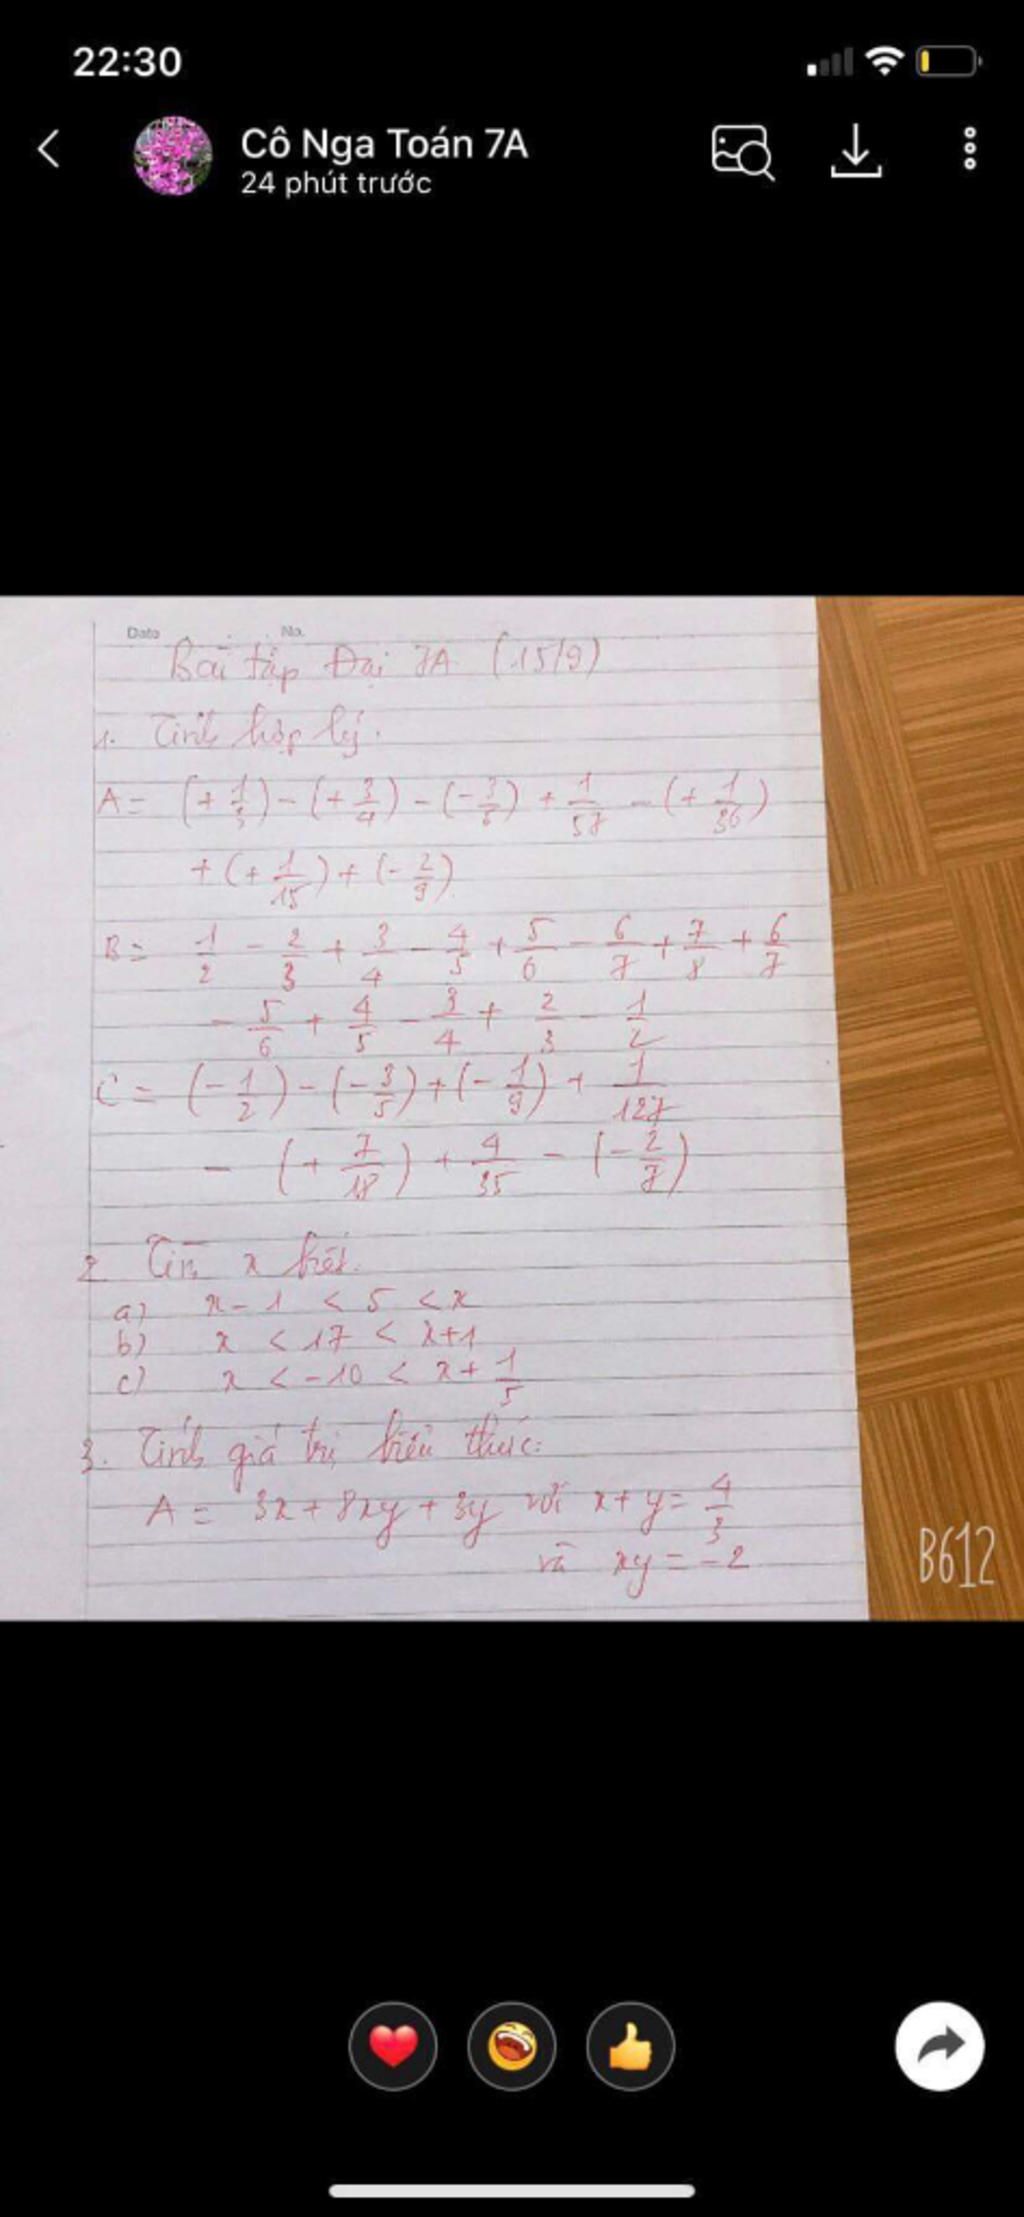 22:30
Cô Nga Toán 7A
24 phút trước
Date No.
Bài tập Đại 7A (15/9)
1. Tính hợp lý.
A = (+ 1/3) - (+ 3/4) - (- 3/5) + 1/57 - (+ 1/36)
+ (+ 1/15) + (- 2/9)
B = 1/2 - 2/3 + 3/4 - 4/5 + 5/6 - 6/7 + 7/8 + 6/7
- 5/6 + 4/5 - 3/4 + 2/3 - 1/2
C = (- 1/2) - (- 3/5) + (- 1/9) + 1/127
- (+ 7/18) + 4/35 - (- 2/7)
2. Tìm x biết.
a) x - 1 < 5 < x
b) x < 17 < x+1
c) x < -10 < x + 1/5
3. Tính giá trị biểu thức:
A = 3x + 8xy + 3y với x + y = 4/3
và xy = -2
B612